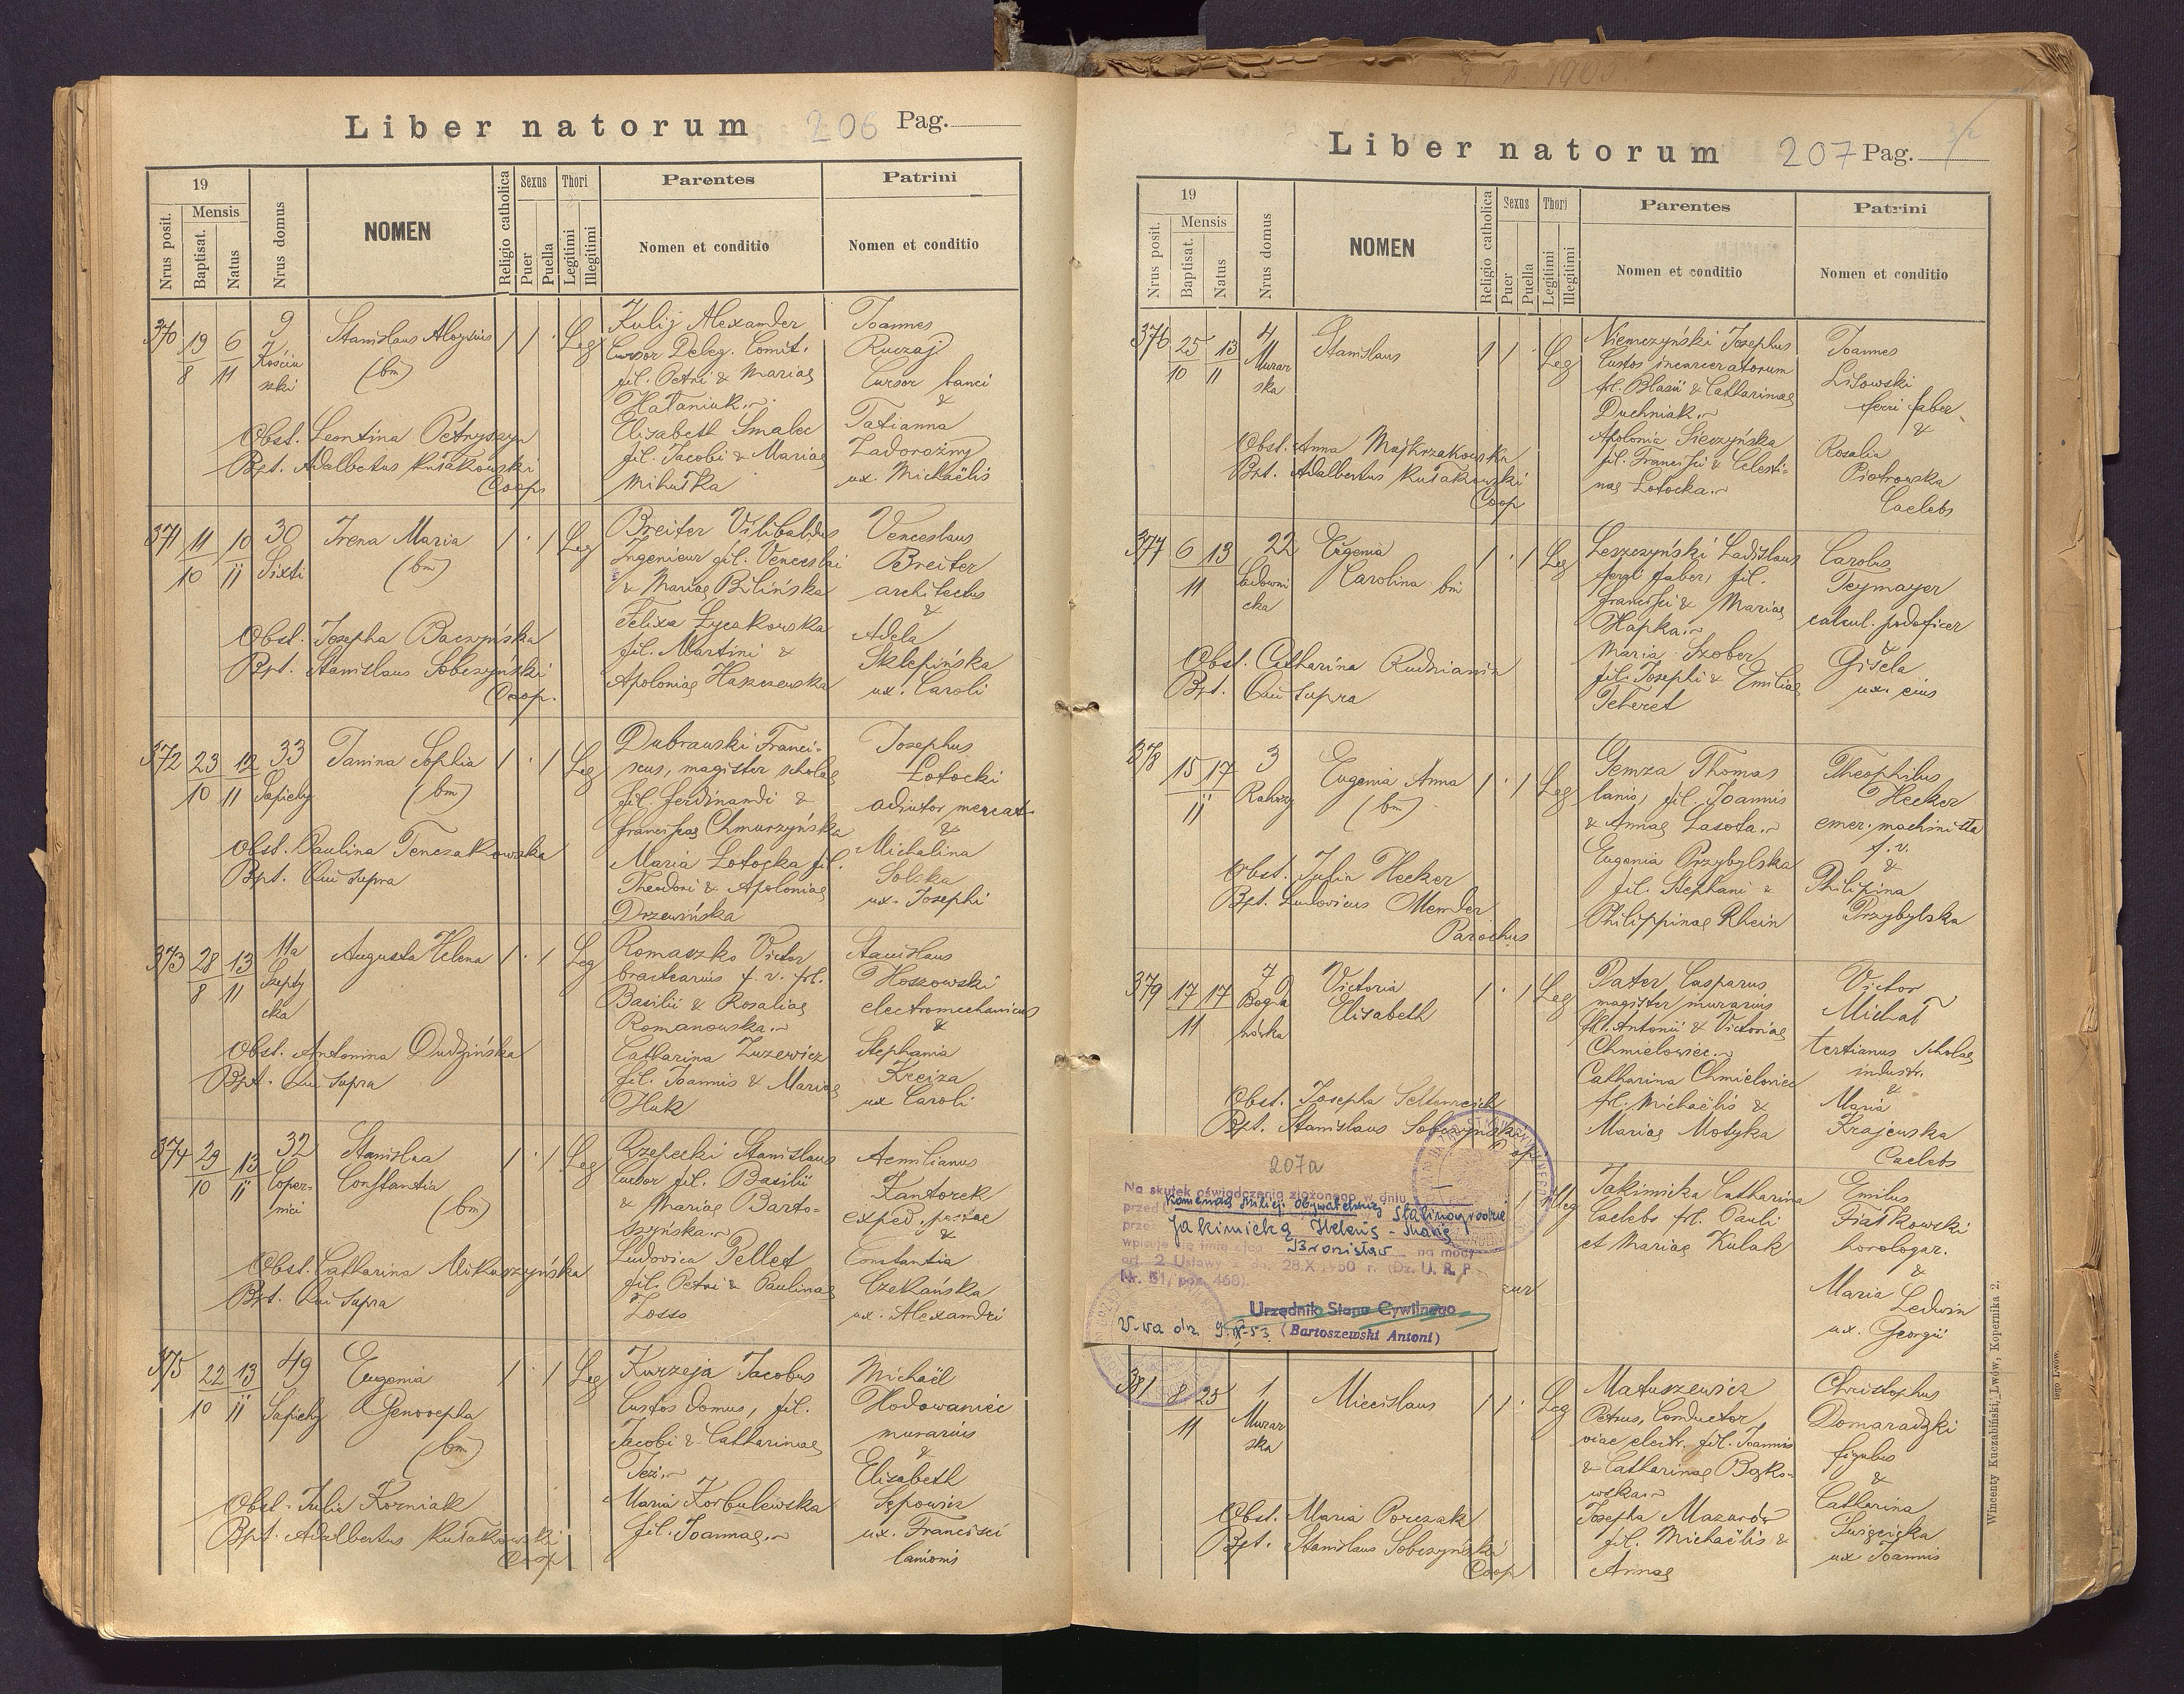 Liber natorum 206 Pag.
19
Mensis
Nrus posit.
Baptisat.
Natus
Nrus domus
NOMEN
Religio catholica
Sexus
Puer
Puella
Thori
Legitimi
Illegitimi
Parentes
Nomen et conditio
Patrini
Nomen et conditio
370
19
8
6
11
9
Kościu
szki
Stanislaus Aloysius
(bm)
Leg
Kulij Alexander
Cursor Deleg. Comit.
fil. Petri & Mariae
Hataniuk.
Elisabeth Smalec
fil. Jacobi & Mariae
Mihułka
Joannes
Ruczaj
Cursor banci
&
Tatianna
Zadorożny
ux. Michaëlis
Obst. Leontina Petryszyn
Bpt. Adalbertus Kułakowski
Coop
371
11
10
10
11
30
Sixti
Irena Maria
(bm)
Leg
Breiter Vilibaldus
Ingenieur fil. Venceslai
& Mariae Bilińska
Felixa Łyczakowska
fil. Martini &
Apoloniae Haszczewska
Venceslaus
Breiter
architectus
&
Adela
Sklepińska
ux. Caroli
Obst. Josepha Baczyńska
Bpt. Stanislaus Sobczyński
Coop.
372
23
10
12
11
33
Sapiehy
Janina Sophia
(bm)
Leg
Dubrawski Franci-
scus, magister scholae
fil. Ferdinandi &
Franciscae Chmurzyńska
Maria Łotocka fil.
Theodori & Apoloniae
Drzewińska
Josephus
Łotocki
adiutor mercat.
&
Michalina
Solska
ux. Josephi
Obst. Paulina Tenczakowska
Bpt. Qui supra
373
28
8
13
11
11a
Szepty
cka
Augusta Helena
Leg
Romaszko Victor
bractearius f. v. fil.
Basilii & Rosaliae
Romanowska.
Catharina Zuzewicz
fil. Joannis & Mariae
Huk
Stanislaus
Hoszowski
electromechanicus
&
Stephania
Kreiza
ux Caroli
Obst. Antonina Dudzińska
Bpt. Qui supra
374
29
10
13
11
32
Coper-
nici
Stanislaa
Constantia
(bm)
Leg
Rzepecki Stanislaus
fil. Basilii
& Mariae Barto-
szyńska.
Ludovica Pellet
fil. Petri & Paulinae
Zosso
Aemilianus
Kantorek
exped. postae
&
Constantia
Czekańska
ux. Alexandri
Obst. Catharina Mikuszyńska
Bpt. Qui supra
375
22
10
13
11
49
Sapiehy
Eugenia
Genovepha
(bm)
Leg
Kurzeja Jacobus
Custos domus, fil.
Jacobi & Catharinae
Maria Korbulewska
fil. Joannae.
Michaël
Hodowaniec
murarius
&
Elisabeth
Sępowicz
ux. Francisci
lanionis
Obst. Julia Korniak
Bpt. Adalbertus Kułakowski
Coop
Liber natorum 207 Pag.
19
Mensis
Nrus posit.
Baptisat.
Natus
Nrus domus
NOMEN
Religio catholica
Sexus
Puer
Puella
Thori
Legitimi
Illegitimi
Parentes
Nomen et conditio
Patrini
Nomen et conditio
376
25
10
13
11
4
Murar
ska
Stanislaus
Leg
Niemczyński Josephus
Custos incarceratorum
fil. Blasii & Catharinae
Duchniak.
Apolonia Sieczyńska
fil. Francisci & Celesti-
nae Łotocka.
Joannes
Lisowski
ferri faber
&
Rosalia
Piotrowska
Caelebs
Obst. Anna Majkrzakowska
Bpt. Adalbertus Kułakowski
Coop
377
6
11
13
22
Sadowni
cka
Eugenia
Carolina bm
Leg
Leszczyński Ladislaus
ferri faber, fil.
Francisci & Mariae
Hapka.
Maria Szober
fil. Josephi & Emiliae
Teheret
Carolus
Teymayer
calcul. podoficer
&
Gisela
ux. eius
Obst. Catharina Rudzianin
Bpt. Qui supra
378
15
17
11
3
Eugenia Anna
(bm)
Leg
Gemza Thomas
lanio, fil. Joannis
& Annae Lasota.
Eugenia Przybylska
fil. Stephani &
Philippinae Rhein
Theophilus
Hecker
emer. machinista
f. v.
&
Philipina
Przybylska
Obst. Julia Hecker
Bpt. Ludovicus Member
Parochus
379
17
11
17
7
Bogda
nówka
Victoria
Elisabeth
Leg
Pater Casparus
magister murarius
fil. Antonii & Victoriae
Chmielowiec.
Catharina Chmielowiec
fil. Michaëlis &
Mariae Motyka
Victor
Michał
tertianus scholae
industr.
&
Maria
Krajewska
Caelebs
Obst. Josepha Seltenreich
Bpt. Stanislaus Sobczyński
207a
Na skutek oświadczenia złożonego w dniu
przed Komendą Milicji Obywatelskiej Stalinogrodzie
przez Jakimicką Helenę - Marię
wpisuje się imię ojca Bronisław na mocy
art. 2 Ustawy z dn. 28.X 1950 r. (Dz. U. R. P.
Nr. 51, poz. 468).
Urzędnik Stanu Cywilnego
W-wa dn. 9.IX-53 (Bartoszewski Antoni)
Illeg
Jakimicka Catharina
Caelebs fil. Pauli
et Mariae Kulak
Emilus
Fiałkowski
horologar.
&
Maria
Ledwin
ux. Georgii
381
8
11
25
1
Murar
ska
Miecislaus
Leg
Matuszewicz
Petrus, Conductor
viae electr. fil. Joannis
& Catharinae Bożko-
wska
Josepha Mazurów
fil. Michaëlis &
Annae
Christophus
Domaradzki
figulus
&
Catharina
ux Joannis
Obst. Maria Porczak
Bpt. Stanislaus Sobczyński
Coop
Wincenty Kuczabiński, Lwów, Kopernika 2.